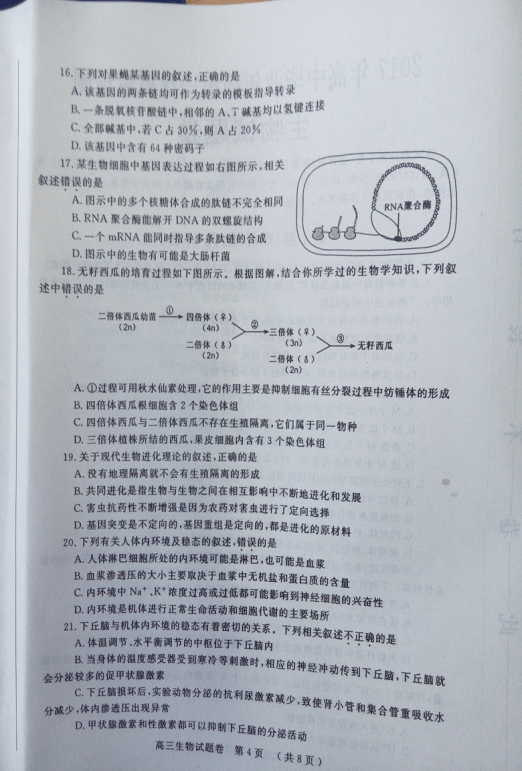 16.下列对果蝇某基因的叙述,正确的是
A.该基因的两条链均可作为转录的模板指导转录
B.一条脱氧核苷酸链中,相邻的A、T碱基均以氢键连接
C.全部碱基中,若C占30%,则A占20%
D.该基因中含有64种密码子
17.某生物细胞中基因表达过程如右图所示,相关
叙述错误的是
A.图示中的多个核糖体合成的肽链不完全相同
B.RNA聚合酶能解开DNA的双螺旋结构
C.一个mRNA能同时指导多条肽链的合成
D.图示中的生物有可能是大肠杆菌
RNA聚合酶
18.无籽西瓜的培育过程如下图所示。根据图解,结合你所学过的生物学知识,下列叙
述中错误的是
二倍体西瓜幼苗 ① 四倍体(♀)
(2n) (4n) ② 三倍体(♀)
二倍体(♂) (3n) ③ 无籽西瓜
(2n) 二倍体(♂)
(2n)
A.①过程可用秋水仙素处理,它的作用主要是抑制细胞有丝分裂过程中纺锤体的形成
B.四倍体西瓜根细胞含2个染色体组
C.四倍体西瓜与二倍体西瓜不存在生殖隔离,它们属于同一物种
D.三倍体植株所结的西瓜,果皮细胞内含有3个染色体组
19.关于现代生物进化理论的叙述,正确的是
A.没有地理隔离就不会有生殖隔离的形成
B.共同进化是指生物与生物之间在相互影响中不断地进化和发展
C.害虫抗药性不断增强是因为农药对害虫进行了定向选择
D.基因突变是不定向的,基因重组是定向的,都是进化的原材料
20.下列有关人体内环境及稳态的叙述,错误的是
A.人体淋巴细胞所处的内环境可能是淋巴,也可能是血浆
B.血浆渗透压的大小主要取决于血浆中无机盐和蛋白质的含量
C.内环境中Na⁺、K⁺浓度过高或过低都可能影响到神经细胞的兴奋性
D.内环境是机体进行正常生命活动和细胞代谢的主要场所
21.下丘脑与机体内环境的稳态有着密切的关系。下列相关叙述不正确的是
A.体温调节、水平衡调节的中枢位于下丘脑内
B.当身体的温度感受器受到寒冷等刺激时,相应的神经冲动传到下丘脑,下丘脑就
会分泌较多的促甲状腺激素
C.下丘脑损坏后,实验动物分泌的抗利尿激素减少,致使肾小管和集合管重吸收水
分减少,体内渗透压出现异常
D.甲状腺激素和性激素都可以抑制下丘脑的分泌活动
高三生物试题卷 第4页 (共8页)